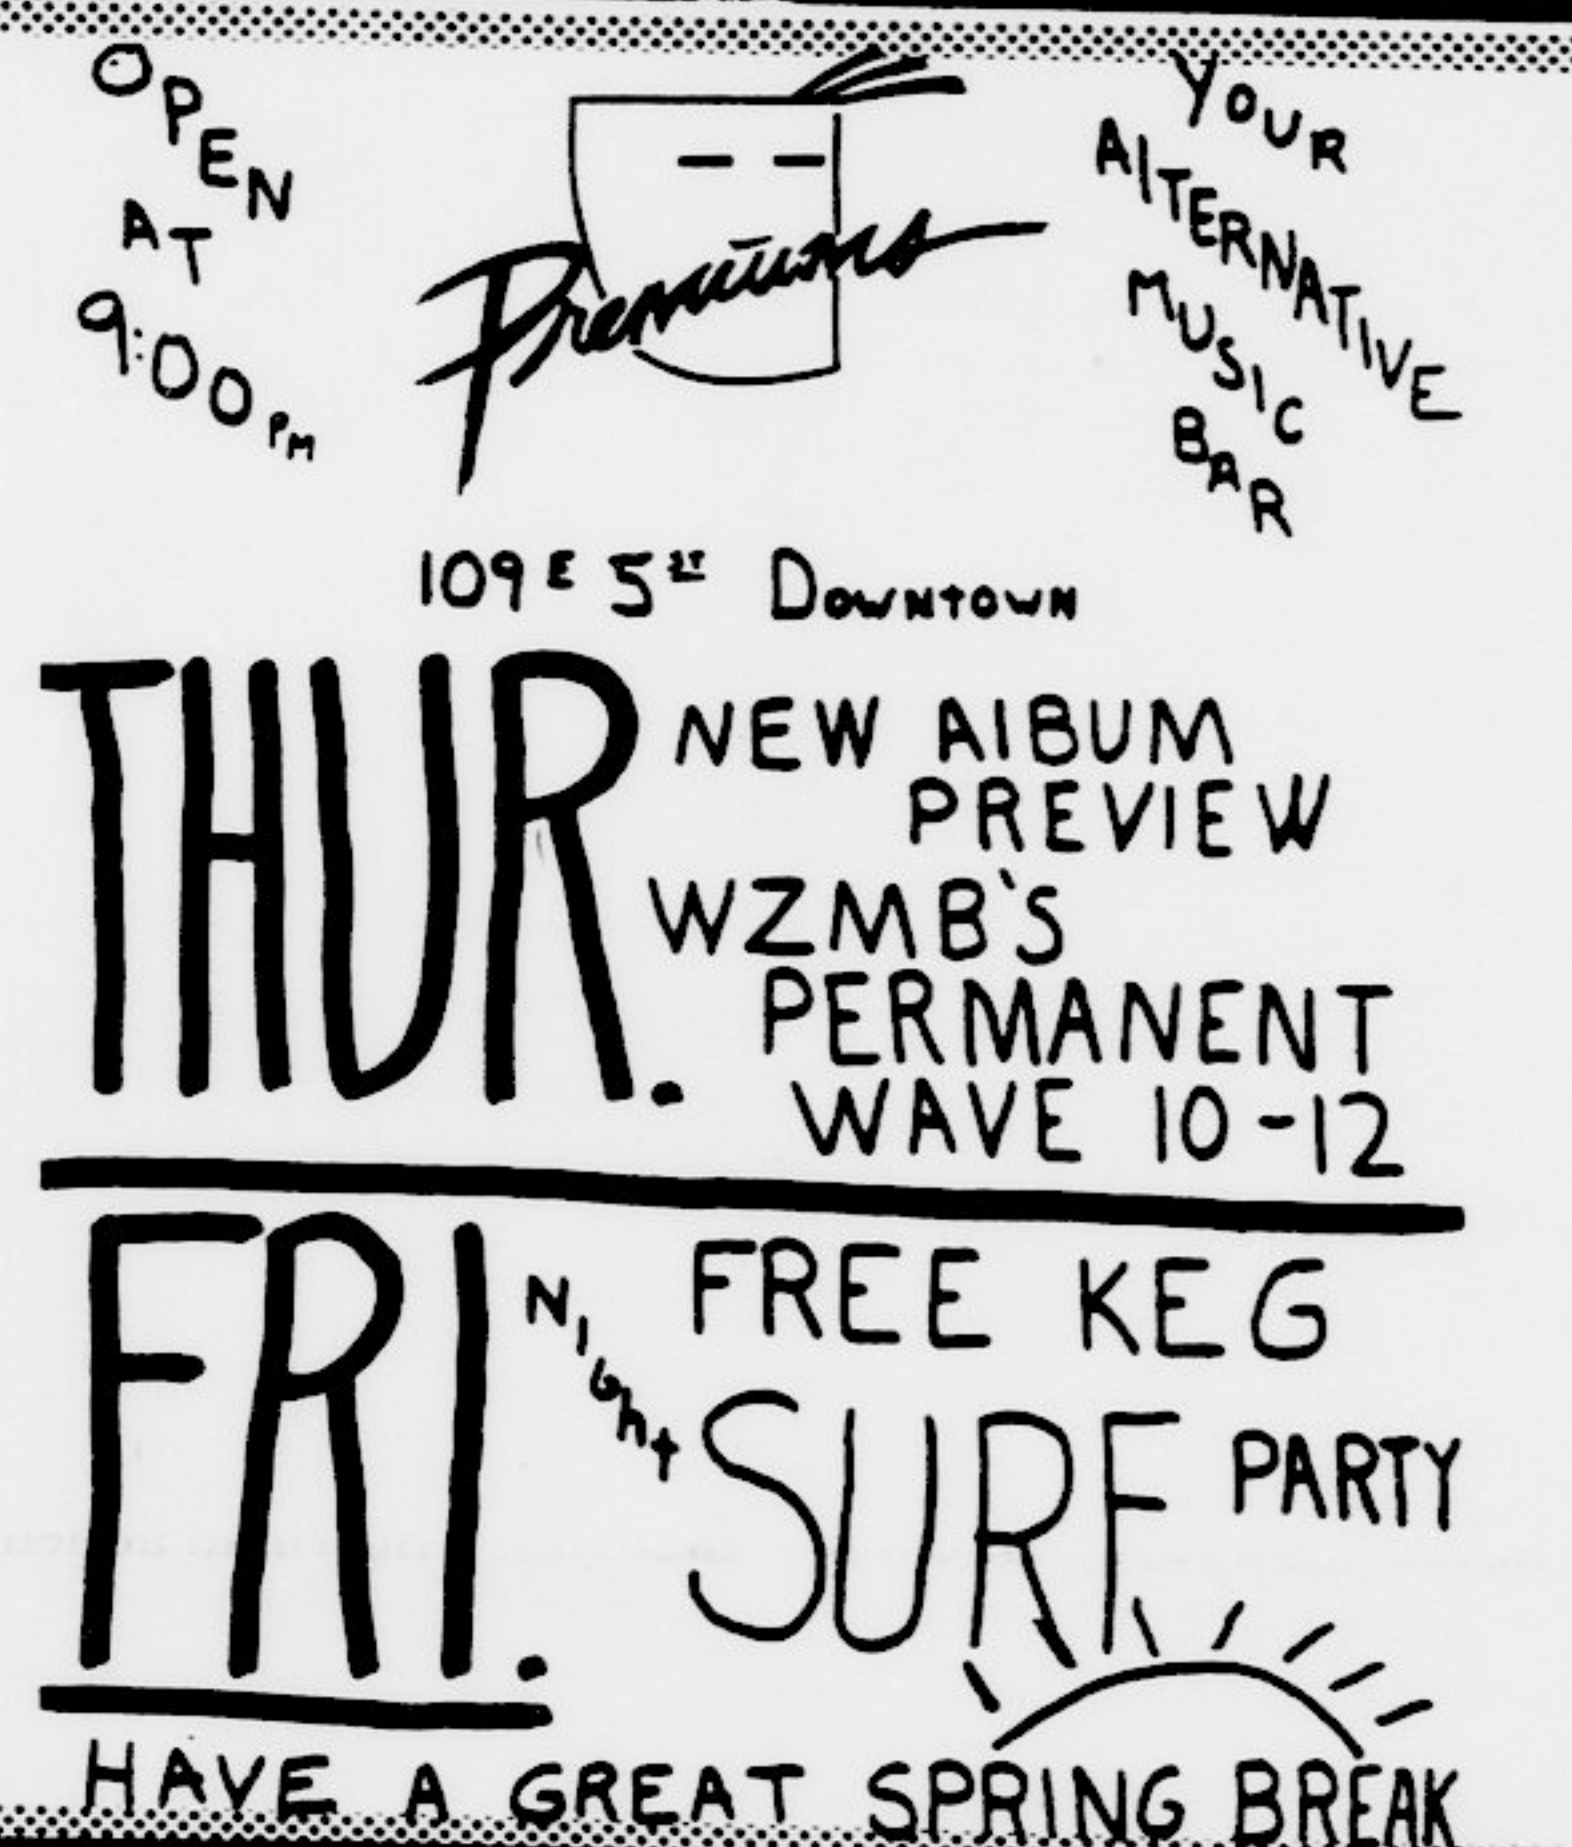 OPEN
AT
9:00 PM
Premiums
YOUR
AlTERNATIVE
MUSIC
BAR
109 E 5 ST DOWNTOWN
THUR.
NEW AlBUM
PREVIEW
WZMB'S
PERMANENT
WAVE 10-12
FRI.
NIGht
FREE KEG
SURF PARTY
HAVE A GREAT SPRING BREAK